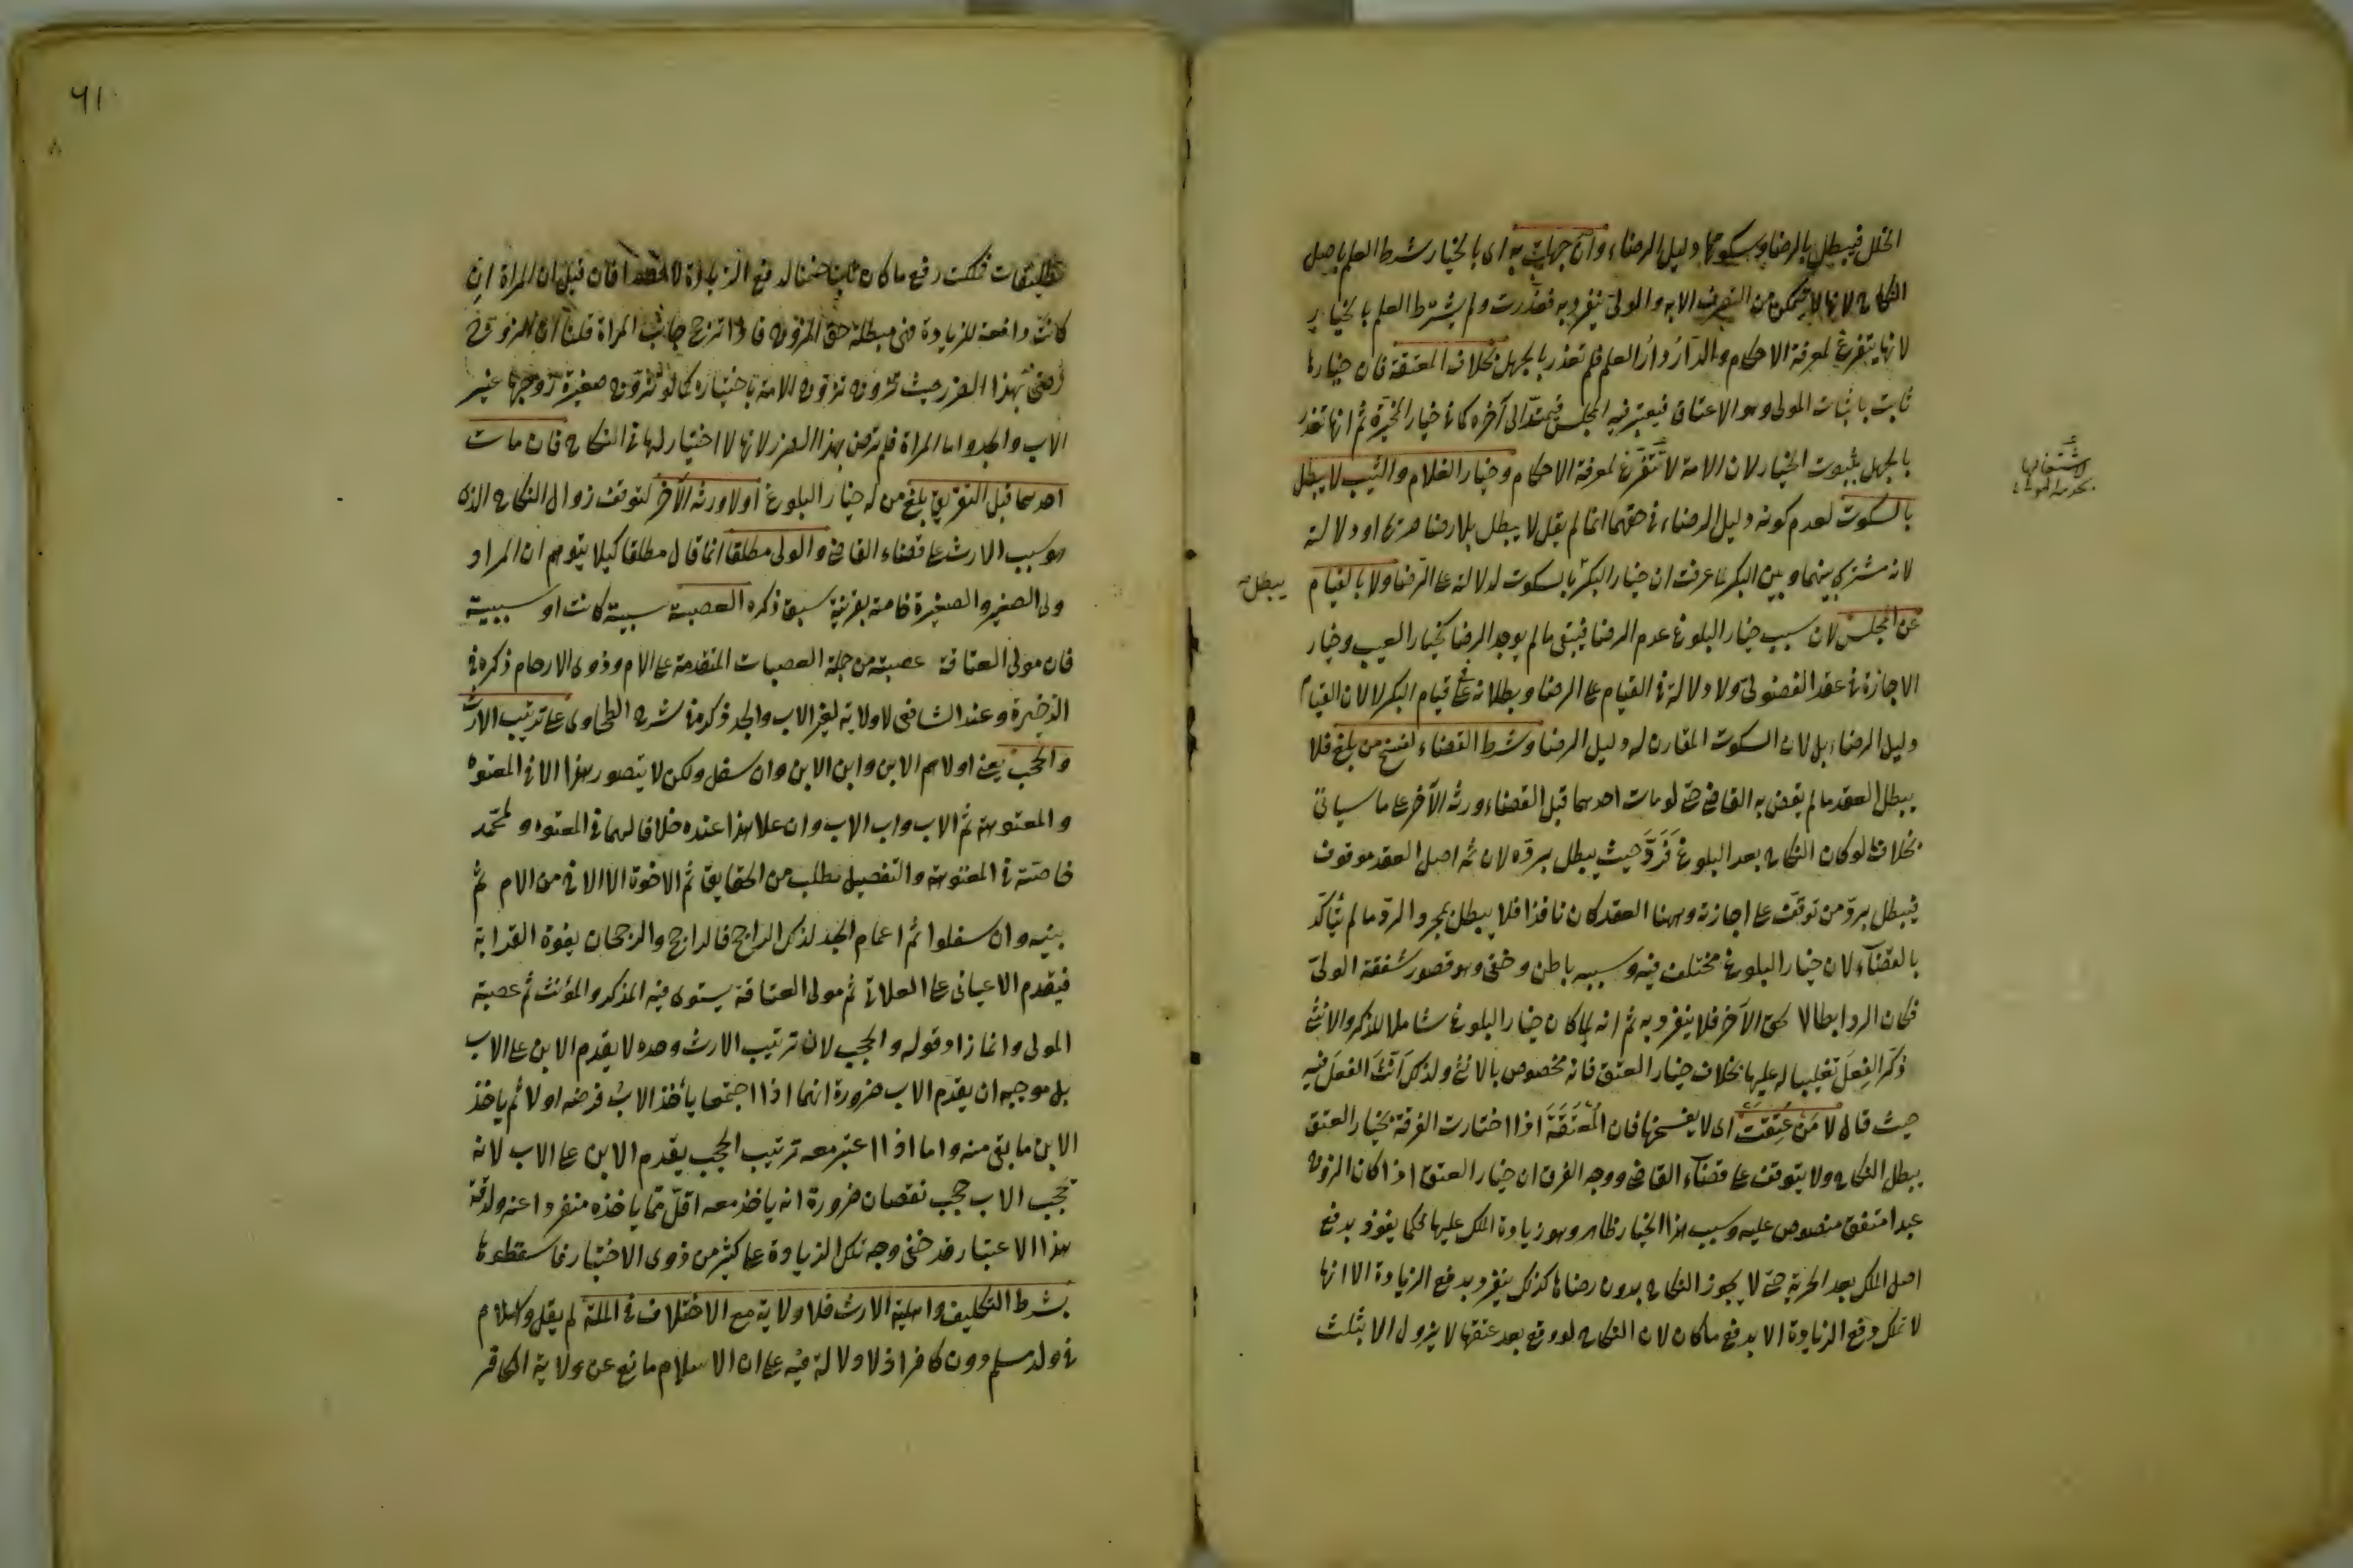 الخلل فيبطل بالرضا وسكوتها دليل الرضاء وان جهلت به اى بالخيار شرط العلم باصل
النكاح لانها لا تتمكن من التصرف الا به والولى ينفرد به فعذرت ولم يشترط العلم بالخيار
لانها تتفرغ لمعرفة الاحكام والدار دار العلم فلم تعذر بالجهل بخلاف المعتقة فان خيارها
ثابت باثبات المولى وهو الاعتاق فيعتبر فيه المجلس فيمتد الى آخره كما فى خيار المخيرة ثم انها تعذر
بالجهل بثبوت الخيار لان الامة لا تتفرغ لمعرفة الاحكام وخيار الغلام والثيب لا يبطل
لاشتغالها
بخدمة المولى
بالسكوت لعدم كونه دليل الرضاء فى حقهما انما لم يقل لا يبطل بلا رضا صريحا او دلالة
لانه مشترك بينهما وبين البكر لما عرفت ان خيار البكر بالسكوت لدلالته على الرضا ولا بالقيام
يبطل صح
عن المجلس لان سبب خيار البلوغ عدم الرضا فيبقى ما لم يوجد الرضا كخيار العيب وخيار
الاجازة فى عقد الفضولى ولا دلالة فى القيام على الرضا وبطلانه فى قيام البكر لا لان القيام
دليل الرضاء بل لان السكوت المقارن له دليل الرضا وشرط القضاء لفسخ من بلغ فلا
يبطل العقد ما لم يقض به القاضى حتى لو مات احدهما قبل القضاء ورثه الآخر على ما سياتى
بخلاف ما لو كان النكاح بعد البلوغ فَرَدَّ حيث يبطل برده لان ثمه اصل العقد موقوف
فيبطل برد من توقف على اجازته وههنا العقد كان نافذا فلا يبطل بمجرد الرد ما لم يتأكد
بالقضآء لان خيار البلوغ مختلف فيه وسببه باطن وخفى وهو قصور شفقة الولى
فكان الرد ابطالا لحق الآخر فلا ينفرد به ثم انه لما كان خيار البلوغ شاملا للذكر والانثى
ذكر الفعل تغليبا له عليها بخلاف خيار العتق فانه مخصوص بالانثى ولذلك انّث الفعل فيه
حيث قال لا مَن عتقت اى لا يفسخها فان المعتَقَة اذا اختارت الفرقة بخيار العتق
يبطل النكاح ولا يتوقف على قضآء القاضى ووجه الفرق ان خيار العتق اذا كان الزوج
عبدا متفق منصوص عليه وسبب هذا الخيار ظاهر وهو زيادة الملك عليها فكما يفوز بدفع
اصل الملك بعد الحرية حتى لا يجوز النكاح بدون رضاها كذلك ينفرد بدفع الزيادة الا انها
لا تملك دفع الزيادة الا بدفع ما كان لان النكاح لو وقع بعد عتقها لا يزول الا بثلث
٦١
تطليقات فملكت رفع ما كان ثابتا ضمنا لدفع الزيادة لا قصدا فان قيل ان المراة ان
كانت دافعة للزيادة فهى مبطلة حق الزوج فلماذا ترجح جانب المراة قلنا ان الزوج
رضى بهذا الضرر حيث تزوج الامة باختياره كما لو تزوج صغيرة زوجها غير
الاب والجد واما المراة فلم ترض بهذا الضرر لانها لا اختيار لها فى النكاح فان مات
احدهما قبل التفريق بلغ من له خيار البلوغ اولا ورثه الآخر لتوقف زوال النكاح الذى
هو سبب الارث على قضاء القاضى والولى مطلقا انما قال مطلقا كيلا يتوهم ان المراد
ولى الصغير والصغيرة خاصة بقرينة سبق ذكره العصبة نسبية كانت او سببية
فان مولى العتاقة عصبة من جملة العصبات المتقدمة على الام وذوى الارحام ذكره فى
الذخيرة وعند الشافى لا ولاية لغير الاب والجد ذكره فى شرح الطحاوى على ترتيب الارث
والحجب يعنى اولاهم الابن وابن الابن وان سفل ولكن لا يتصور هذا الا فى المعتوه
والمعتوهة ثم الاب واب الاب وان علا هذا عنده خلافا لهما فى المعتوه ولمحمد
خاصة فى المعتوهة والتفصيل يطلب من الحقايق ثم الاخوة الا الاخ من الام ثم
بنيه وان سفلوا ثم اعمام الجد لذلك الراجح فالراجح والرجحان بقوة القرابة
فيقدم الاعيانى على العلاتى ثم مولى العتاقة يستوى فيه المذكر والمؤنث ثم عصبة
المولى وانما زاد قوله والحجب لان ترتيب الارث وحده لا يقدم الابن على الاب
بل موجبه ان يقدم الاب ضرورة انهما اذا اجتمعا يأخذ الاب فرضه اولا ثم ياخذ
الابن ما بقى منه واما اذا اعتبر معه ترتيب الحجب يقدم الابن على الاب لانه
يحجب الاب حجب نقصان ضرورة انه ياخذ معه اقل مما ياخذه منفردا عنه ولدقة
هذا الاعتبار قد خفى وجه تلك الزيادة على كثير من ذوى الاختيار فاسقطوها
بشرط التكليف واهلية الارث فلا ولاية مع الاختلاف فى الملة لم يقل واسلام
فى ولد مسلم دون كافر اذ لا دلالة فيه على ان الاسلام مانع عن ولاية الكافر